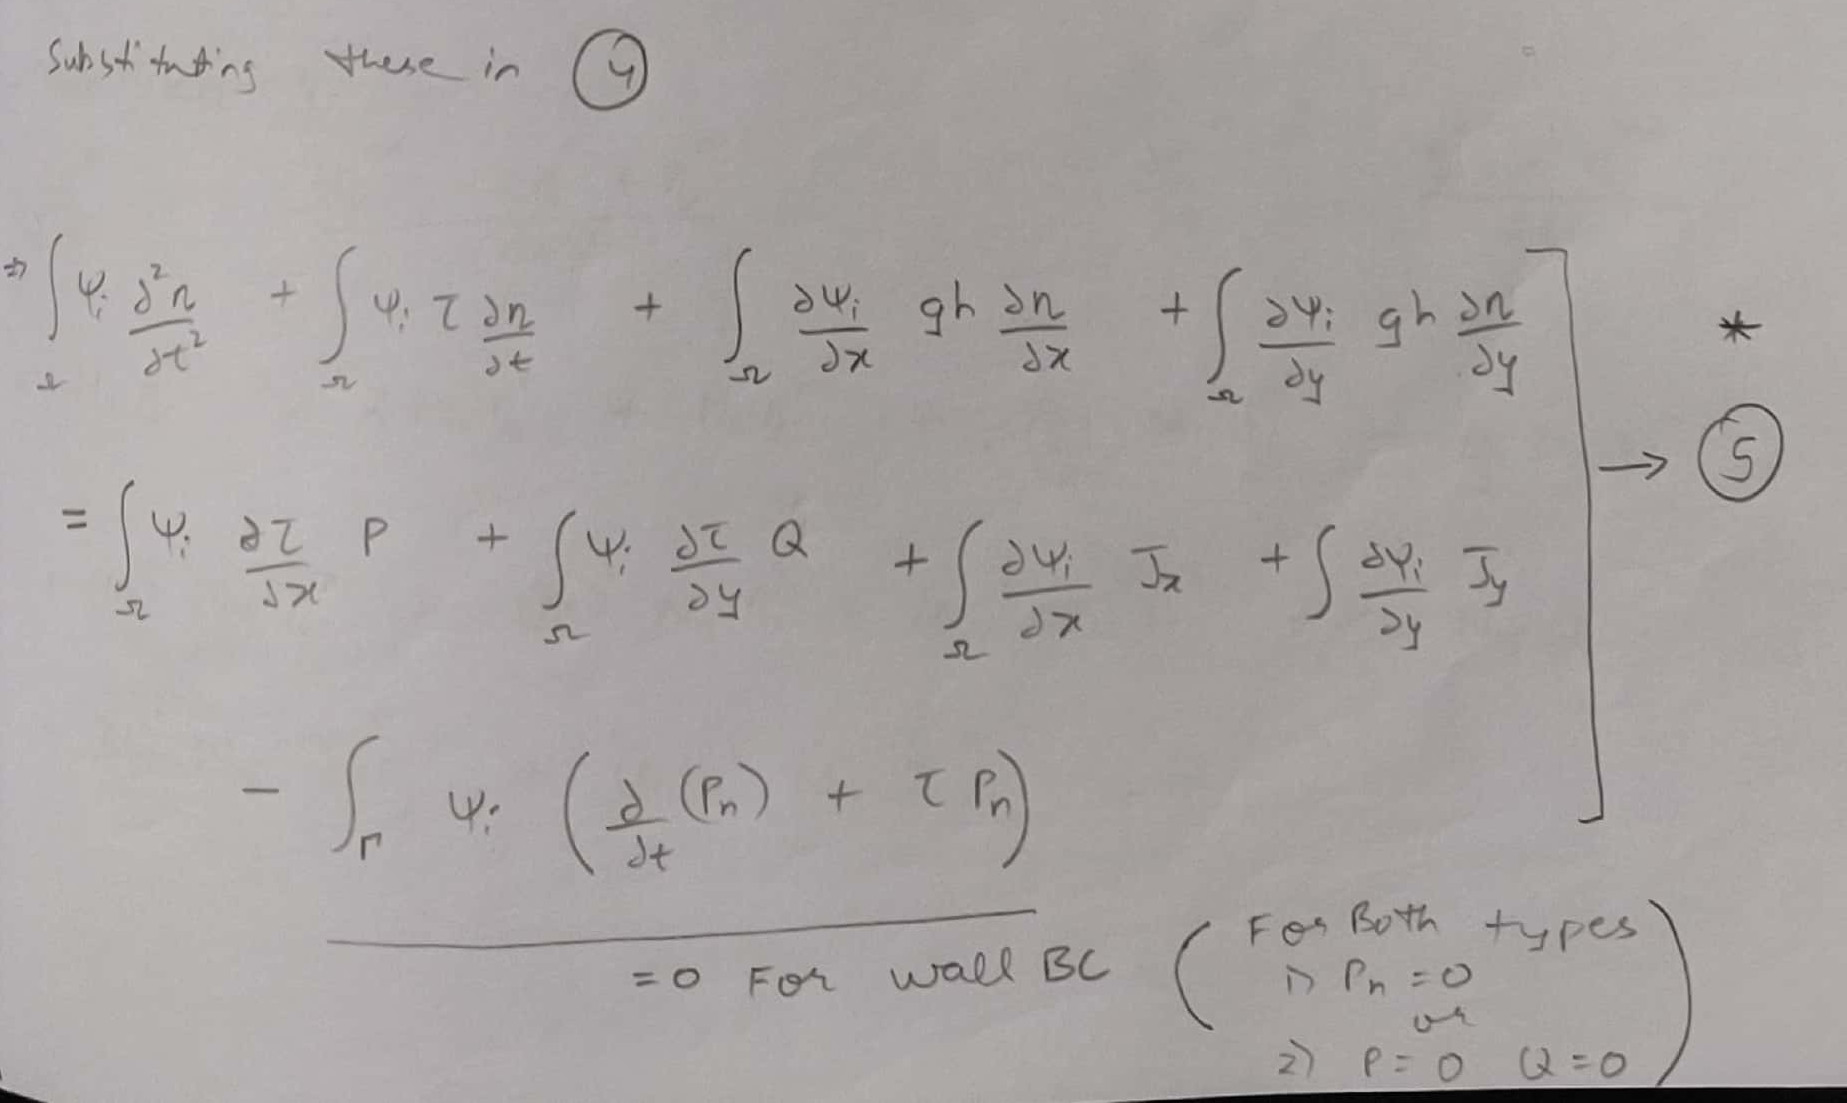 Substituting these in ④
⇒ ∫_Ω ψ_i ∂²η/∂t² + ∫_Ω ψ_i τ ∂η/∂t + ∫_Ω ∂ψ_i/∂x gh ∂η/∂x + ∫_Ω ∂ψ_i/∂y gh ∂η/∂y *
= ∫_Ω ψ_i ∂τ/∂x P + ∫_Ω ψ_i ∂τ/∂y Q + ∫_Ω ∂ψ_i/∂x J_x + ∫ ∂ψ_i/∂y J_y → ⑤
- ∫_Γ ψ_i ( ∂/∂t (P_n) + τ P_n )
= 0 For wall BC ( For Both types
1) P_n = 0
or
2) P = 0 Q = 0 )